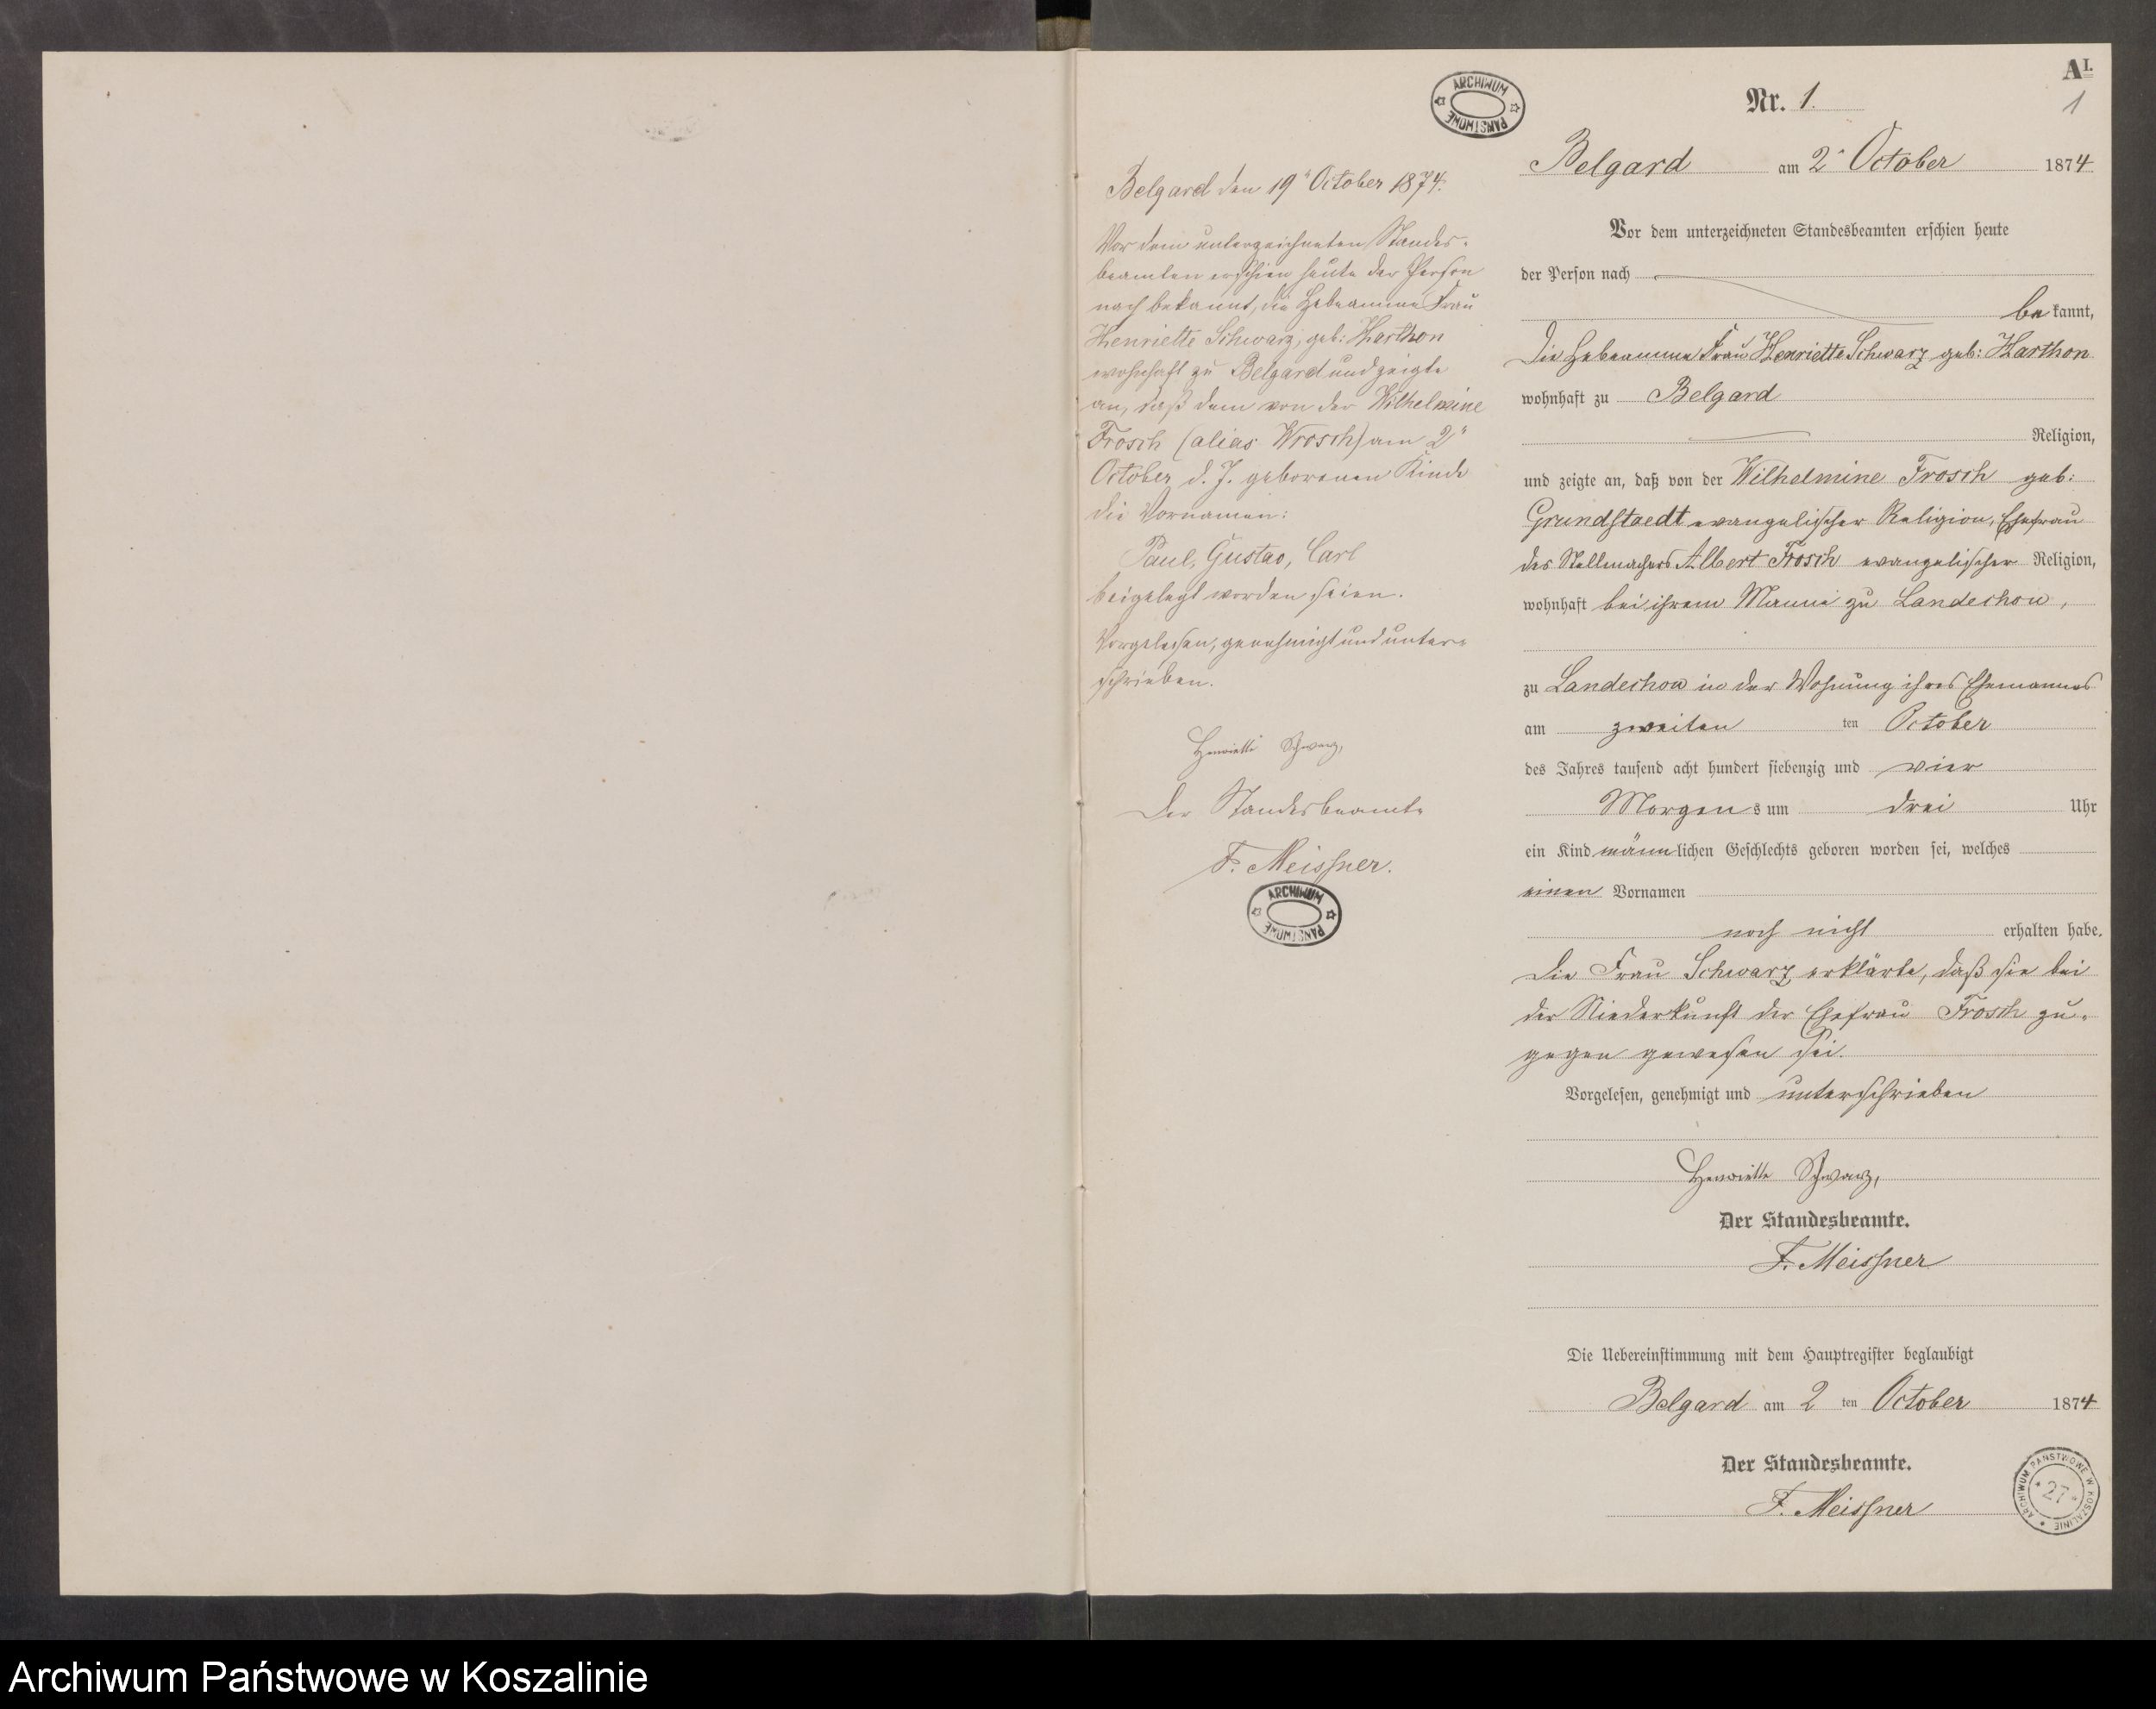 ARCHIWUM PAŃSTWOWE
Belgard den 19" October 1874.
Vor dem unterzeichneten Standes-
beamten erschien heute der Person
nach bekannt, die Hebeamme Frau
Henriette Schwarz, geb: Harthon
wohnhaft zu Belgard und zeigte
an, daß dem von der Wilhelmine
Frosch (alias Wrosch) am 2"
October d. J. geborenen Kinde
die Vornamen:
Paul, Gustav, Carl
beigelegt worden seien.
Vorgelesen, genehmigt und unter-
schrieben.
Henriette Schwarz,
Der Standesbeamte
F. Meissner.
ARCHIWUM PAŃSTWOWE
A I.
1
Nr. 1.
Belgard am 2" October 1874.
Vor dem unterzeichneten Standesbeamten erschien heute
der Person nach
be kannt,
Die Hebeamme Frau Henriette Schwarz geb: Harthon
wohnhaft zu Belgard
Religion,
und zeigte an, daß von der Wilhelmine Frosch geb:
Grundstaedt evangelischer Religion, Ehefrau
des Stellmachers Albert Frosch evangelischer Religion,
wohnhaft bei ihrem Manne zu Landechow,
zu Landechow in der Wohnung ihres Ehemannes
am zweiten ten October
des Jahres tausend acht hundert siebenzig und vier
Morgen s um drei Uhr
ein Kind männlichen Geschlechts geboren worden sei, welches
einen Vornamen
noch nicht erhalten habe.
Die Frau Schwarz erklärte, daß sie bei
der Niederkunft der Ehefrau Frosch zu-
gegen gewesen sei.
Vorgelesen, genehmigt und unterschrieben
Henriette Schwarz,
Der Standesbeamte.
F. Meissner
Die Uebereinstimmung mit dem Hauptregister beglaubigt
Belgard am 2 ten October 1874
Der Standesbeamte.
F. Meissner
ARCHIWUM PAŃSTWOWE W KOSZALINIE
27
Archiwum Państwowe w Koszalinie